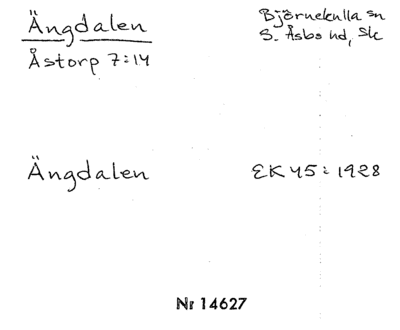 Ängdalen
Björnekulla sn
S. Åsbo hd, Sk
Åstorp 7:14
Ängdalen
EK 45: 1928
Nr 14627